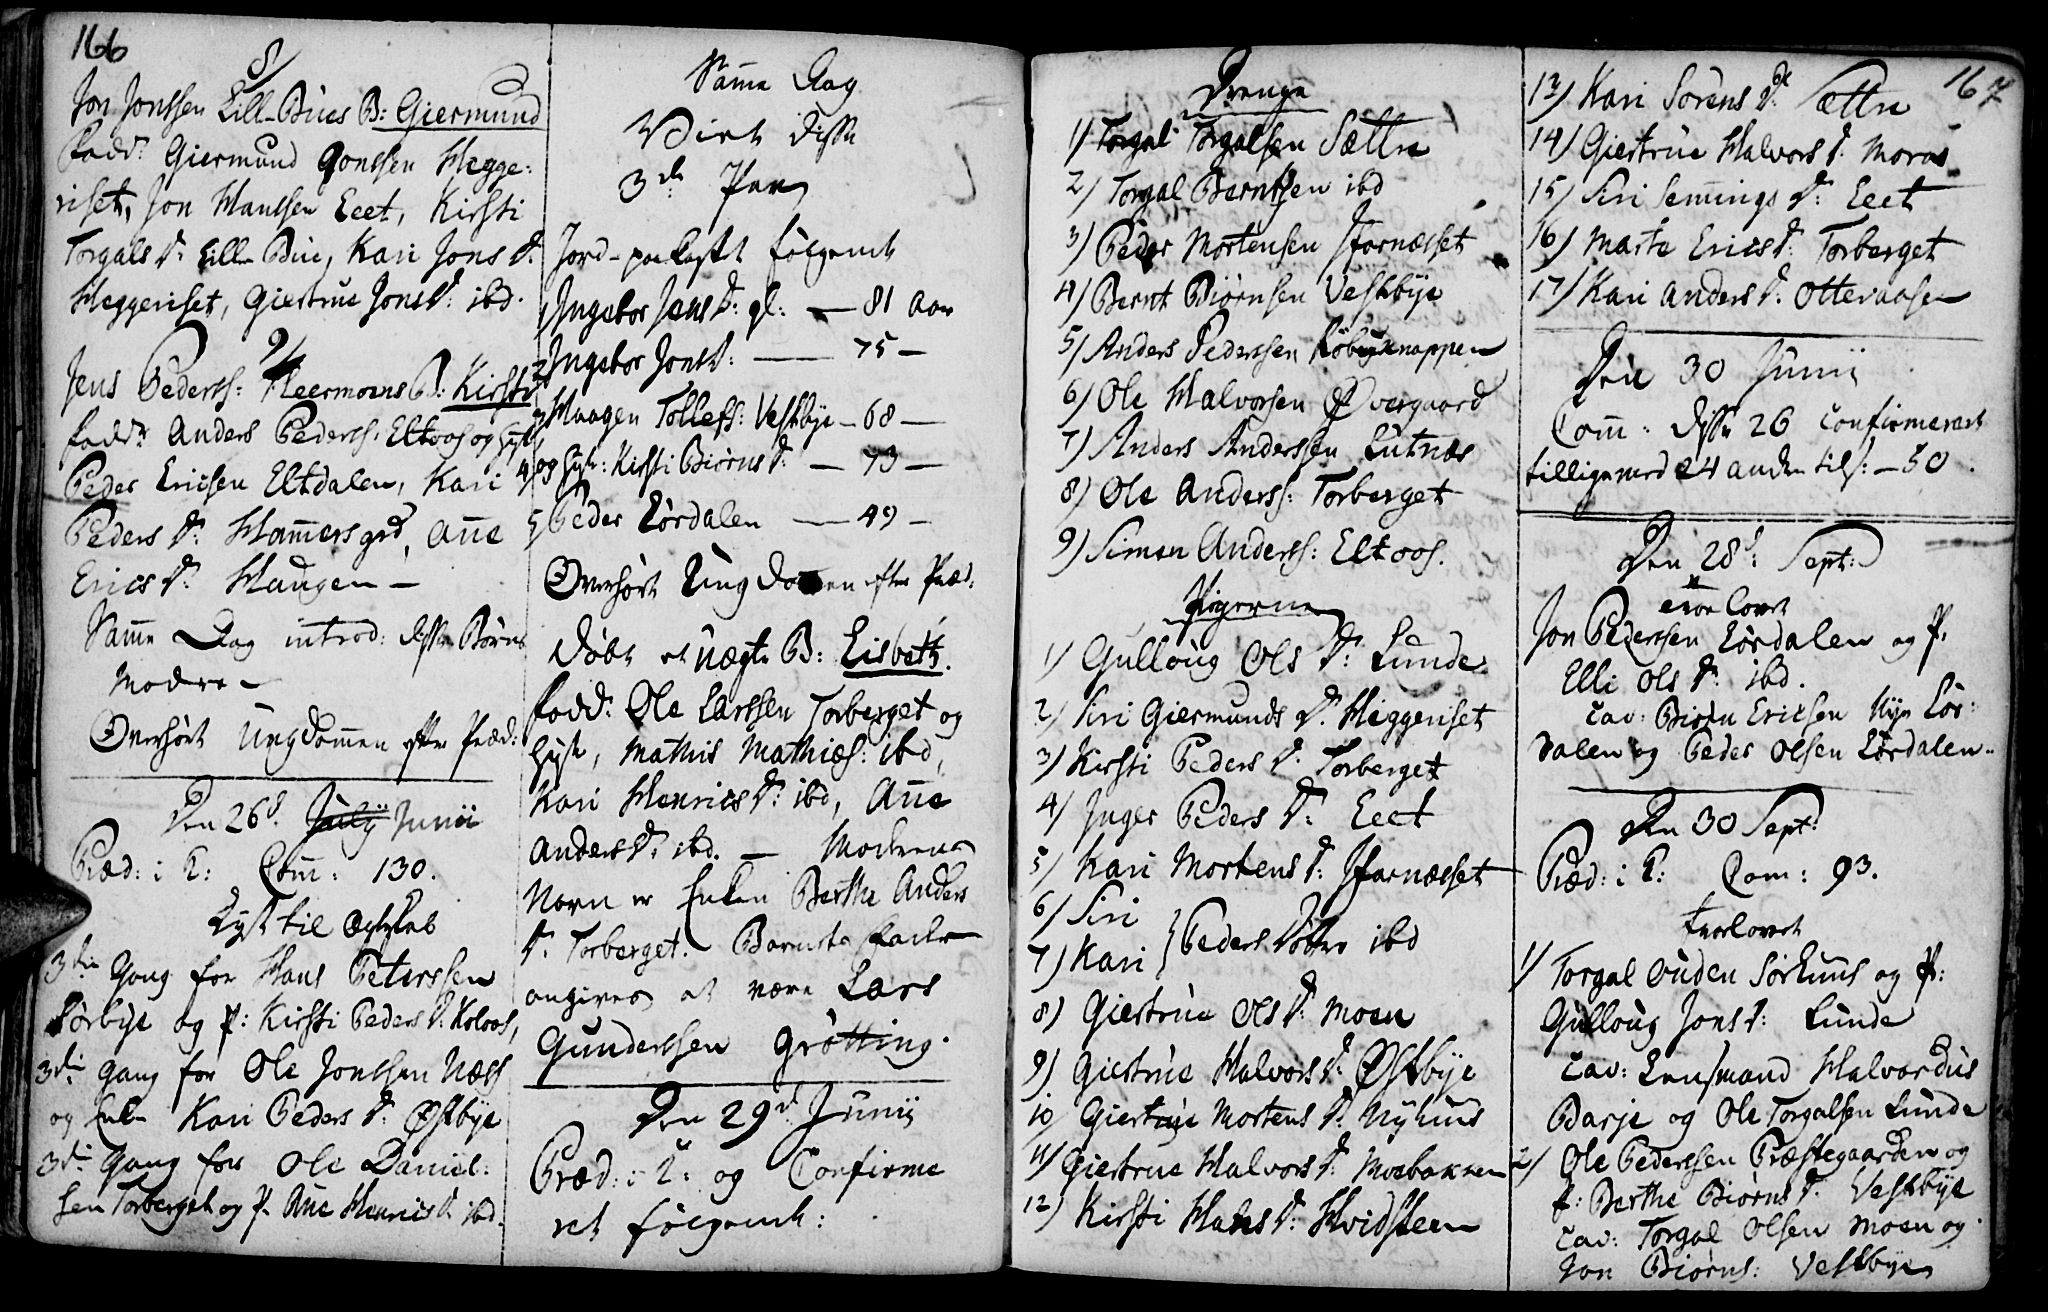 166
8/
Jon Jonssen Lill-Bues B: Giermund
Fadd: Giermund Jonssen Hegge:
riset, Jon Hanssen Eeet, Kirsti
Torgals D: Lill-Bue, Kari Jons D:
Heggeriset, Giertrue Jons D: ibd.
9/
Jens Pederss: Fleermoens B: Kirsti
Fadd: Anders Pederss: Eltoos og Hust:
Peder Ericsen Eltdalen, Kari
Peders D: Hamersgrd, Ane
Erics D: Haugen –
Same Dag introd: disse Børns
Mødre –
Overhørt Ungdommen efter Præd:
Den 26d: July Junii
Præd: i T: Com: 130.
Lyst til Ægteskab
3die Gang for Hans Peterssen
Sørbye og P: Kirsti Peders D: Koloos,
3die Gang for Ole Jonssen Næss
og Enke Kari Peders D: Østbye
3die Gang for Ole Daniel:
sen Torberget og P. Ane Henrics D. ibd.
Same Dag
Viet disse
3de Par
Jord-paakastet følgende
1, Ingebor Jens D: gl: — 81 Aar
2, Ingebor Jons D: — 75 —
3, Haagen Tollefs: Vestbye — 68 —
4, og Hust: Kirsti Biørns D: — 73 —
5, Peder Lørdalen — 49 —
Overhørt Ungdommen efter Præd:
Døbt et uægte B: Lisbeth.
Fadd: Ole Larssen Torberget og
Hust, Mathis Mathiæs: ibd,
Kari Henrics D: ibd, Ane
Anders D: ibd. — Moderens
Navn er Enken Berthe Anders
D: Torberget. Barnets Fader
angives at være Lars
Gunderssen Grøtting.
Den 29d: Junii
Præd: i T: og Confirme
ret følgende:
Drenge
1/ Torgal Torgalsen Sættre
2/ Torgal Berntsen ibd
3/ Peder Mortensen Jfarnæsset
4/ Bernt Biørnsen Vestbye
5/ Anders Pederssen
6/ Ole Halvorsen Øvergaard
7/ Anders Anderssen Lutnæs
8/ Ole Anderss: Torberget
9/ Simen Anderss: Eltoos.
Pigerne
1/ Gulloug Ols D: Lunde
2/ Siri Giermunds D: Heggeriset
3/ Kirsti Peders D: Torberget
4/ Inger Peders D: Eeet
5/ Kari Mortens D: Jfarnæsset
6/ Siri
7/ Kari } Peders Døttre ibd
8/ Giertrue Ols D: Moen
9/ Giertrue Halvors D: Østbye
10 Giertrue Mortens D: Nyhuus
11/ Giertrue Halvors D: Moebakken
12/ Kirsti Hans D: Hvidsteen
167
13/ Kari Sørens D: Sættre
14/ Giertrue Halvors D: Moras
15/ Siri Semings D: Eeet
16/ Marte Erics D: Torberget
17/ Kari Anders D: Ottervaasen
Den 30 Junii
Com: disse 26 Confirmerede
tilligemed 24 andre tils: — 50.
Den 28d: Sept:
Trovlovet
Jon Pederssen Lørdalen og P.
Elli Ols D: ibd.
Cav: Biørn Ericsen Nye Lør:
dalen og Peder Olsen Lørdalen.
Den 30 Sept:
Præd: i T: Com: 93.
Trovlovet
1/ Torgal Ouden Sørhuus og P:
Gulloug Jons D: Lunde
Cav: Lensmand Halvardus
Barje og Ole Torgalsen Lunde
2/ Ole Pederssen Præstegaarden og
P: Berthe Biørns D: Vestbye
Cav: Torgal Olsen Moen og
Jon Biørns: Vestbye